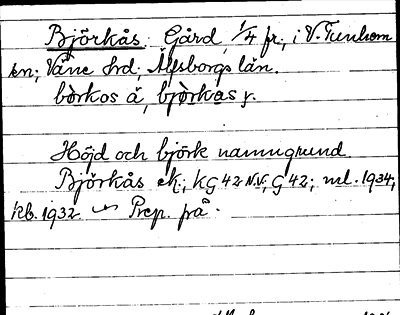 Björkås. Gård, 1/4 fr., i V. Tunhem
sn; Väne hrd; Älfsborgs län.
bò̀rkos å, bjò̀rkas y.
Höjd och björk namngrund.
Björkås ek.; KG 42 N.V., G 42; ml. 1934;
kb. 1932. Prep. på.